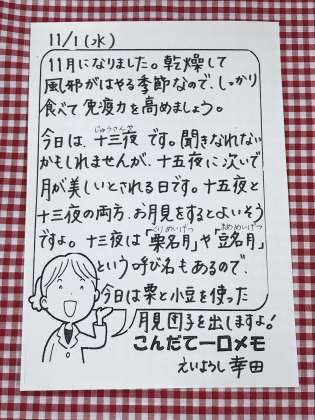 11/1(水)
11月になりました。乾燥して
風邪がはやる季節なので、しっかり
食べて免疫力を高めましょう。
じゅうさんや
今日は、十三夜です。聞きなれない
かもしれませんが、十五夜に次いで
月が美しいとされる日です。十五夜と
十三夜の両方、お月見をするとよいそう
くりめいげつ まめめいげつ
ですよ。十三夜は「栗名月」や「豆名月」
という呼び名もあるので、
今日は栗と小豆を使った
月見団子を出しますよ!
こんだて一口メモ
えいようし 幸田